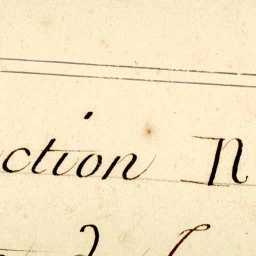 ction N